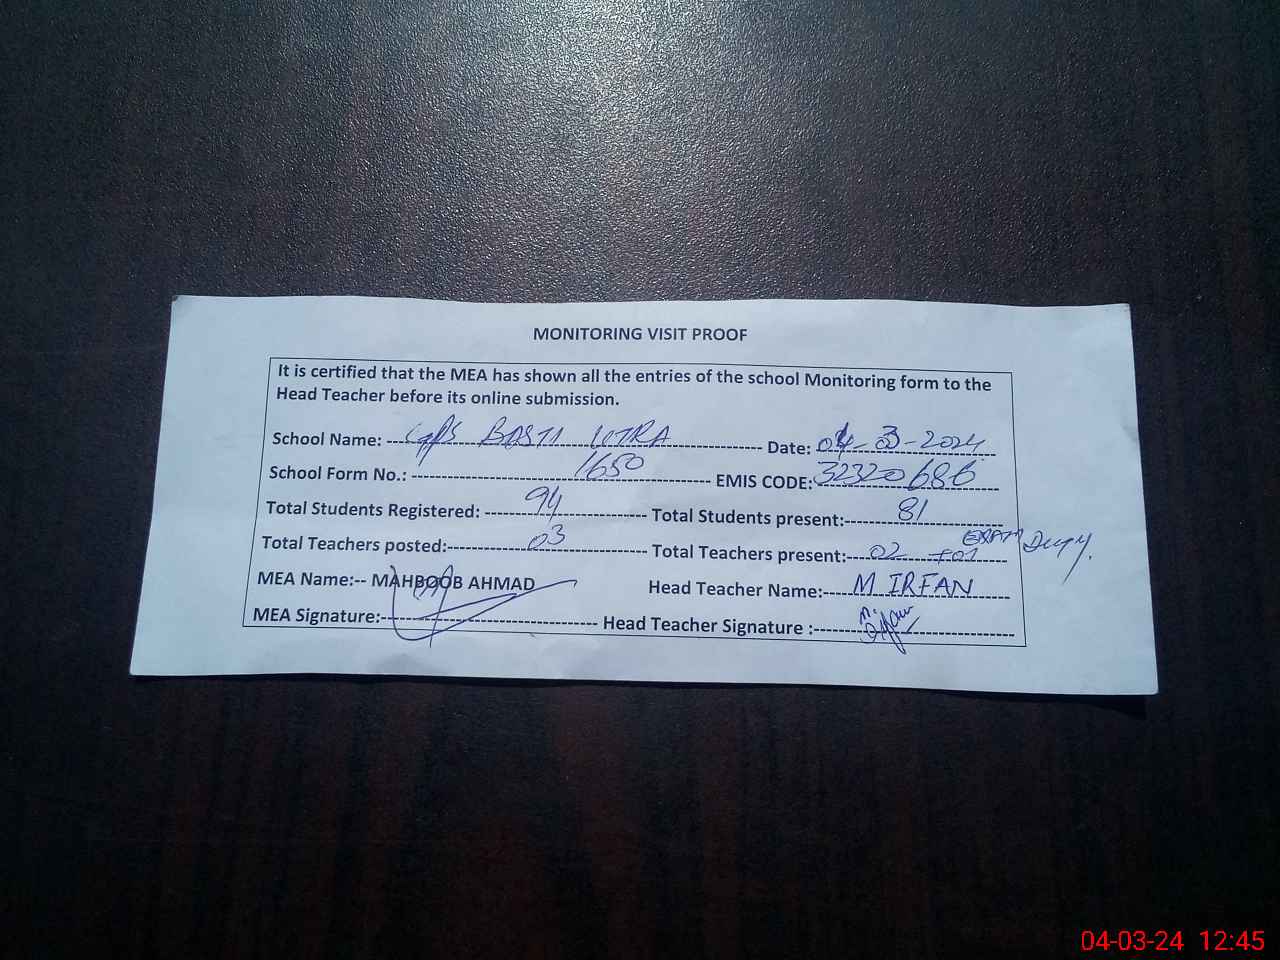 MONITORING VISIT PROOF
It is certified that the MEA has shown all the entries of the school Monitoring form to the
Head Teacher before its online submission.
School Name: GPS BASTI UTRA Date: 04-3-2024
School Form No.: 1650 EMIS CODE: 32320686
Total Students Registered: 94 Total Students present: 81
Total Teachers posted: 03 Total Teachers present: 02 +01 EXAM Duty.
MEA Name:-- MAHBOOB AHMAD Head Teacher Name: M IRFAN
MEA Signature: Head Teacher Signature :
04-03-24 12:45